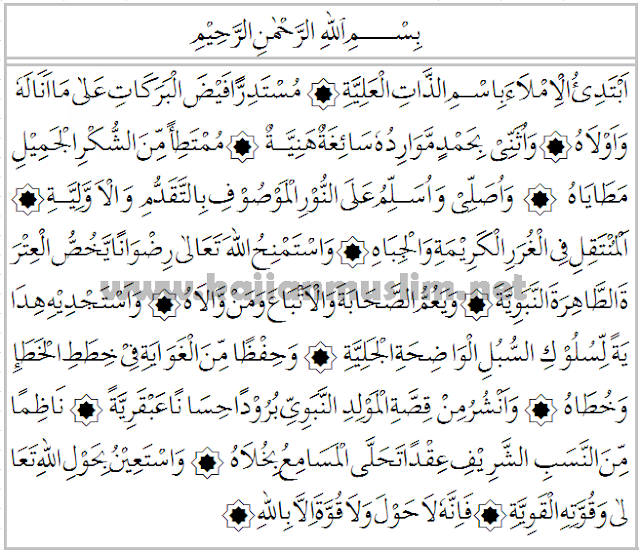 بِسْــــمِ اللهِ الرَّحْمٰنِ الرَّحِيْمِ
اَبْتَدِئُ الْاِمْلَاءَ بِاسْــمِ الذَّاتِ الْعَلِيَّةِ ۞ مُسْتَدِرًّا فَيْضَ الْبَرَكَاتِ عَلٰى مَا اَنَالَهُ
وَاَوْلَاهُ ۞ وَاُثَنِّيْ بِحَمْدٍ مَّوَارِدُهُ سَائِغَةٌ هَنِيَّــةٌ ۞ مُمْتَطِأً مِّنَ الشُّكْرِ الْجَمِيْلِ
مَطَايَاهُ ۞ وَاُصَلِّيْ وَاُسَلِّمُ عَلَى النُّوْرِ الْمَوْصُوْفِ بِالتَّقَدُّمِ وَالْاَوَّلِيَّــةِ ۞
اَلْمُنْتَقِلِ فِى الْغُرَرِ الْكَرِيْمَةِ وَالْجِبَاهِ ۞ وَاسْتَمْنِحُ اللهَ تَعَالٰى رِضْوَانًا يَّخُصُّ الْعِتْرَ
ةَ الطَّاهِرَةَ النَّبَوِيَّةَ ۞ وَيَعُمُّ الصَّحَابَةَ وَالْاَتْبَاعَ وَمَنْ وَّالَاهُ ۞ وَاسْتَجْدِيْهِ هِدَا
يَةً لِّسُلُوْكِ السُّبُلِ الْوَاضِحَةِ الْجَلِيَّةِ ۞ وَحِفْظًا مِّنَ الْغَوَايَةِ فِيْ خِطَطِ الْخَطَاءِ
وَخُطَاهُ ۞ وَاَنْشُرُ مِنْ قِصَّةِ الْمَوْلِدِ النَّبَوِيِّ بُرُوْدًا حِسَانًا عَبْقَرِيَّةً ۞ نَاظِمًا
مِّنَ النَّسَبِ الشَّرِيْفِ عِقْدًا تَحَلَّى الْمَسَامِعُ بِحُلَاهُ ۞ وَاسْتَعِيْنُ بِحَوْلِ اللهِ تَعَا
لٰى وَقُوَّتِهِ الْقَوِيَّةِ ۞ فَاِنَّهُ لَا حَوْلَ وَلَا قُوَّةَ اِلَّا بِاللهِ ۞
www.kajianmuslim.net